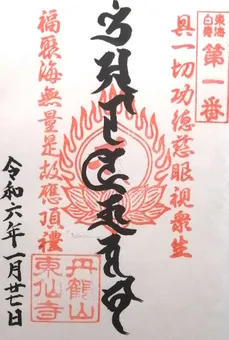 東海
白壽
第一番
具一切功德慈眼視衆生
福聚海無量是故應頂禮
丹鶴山
東仙寺
令和六年一月廿七日